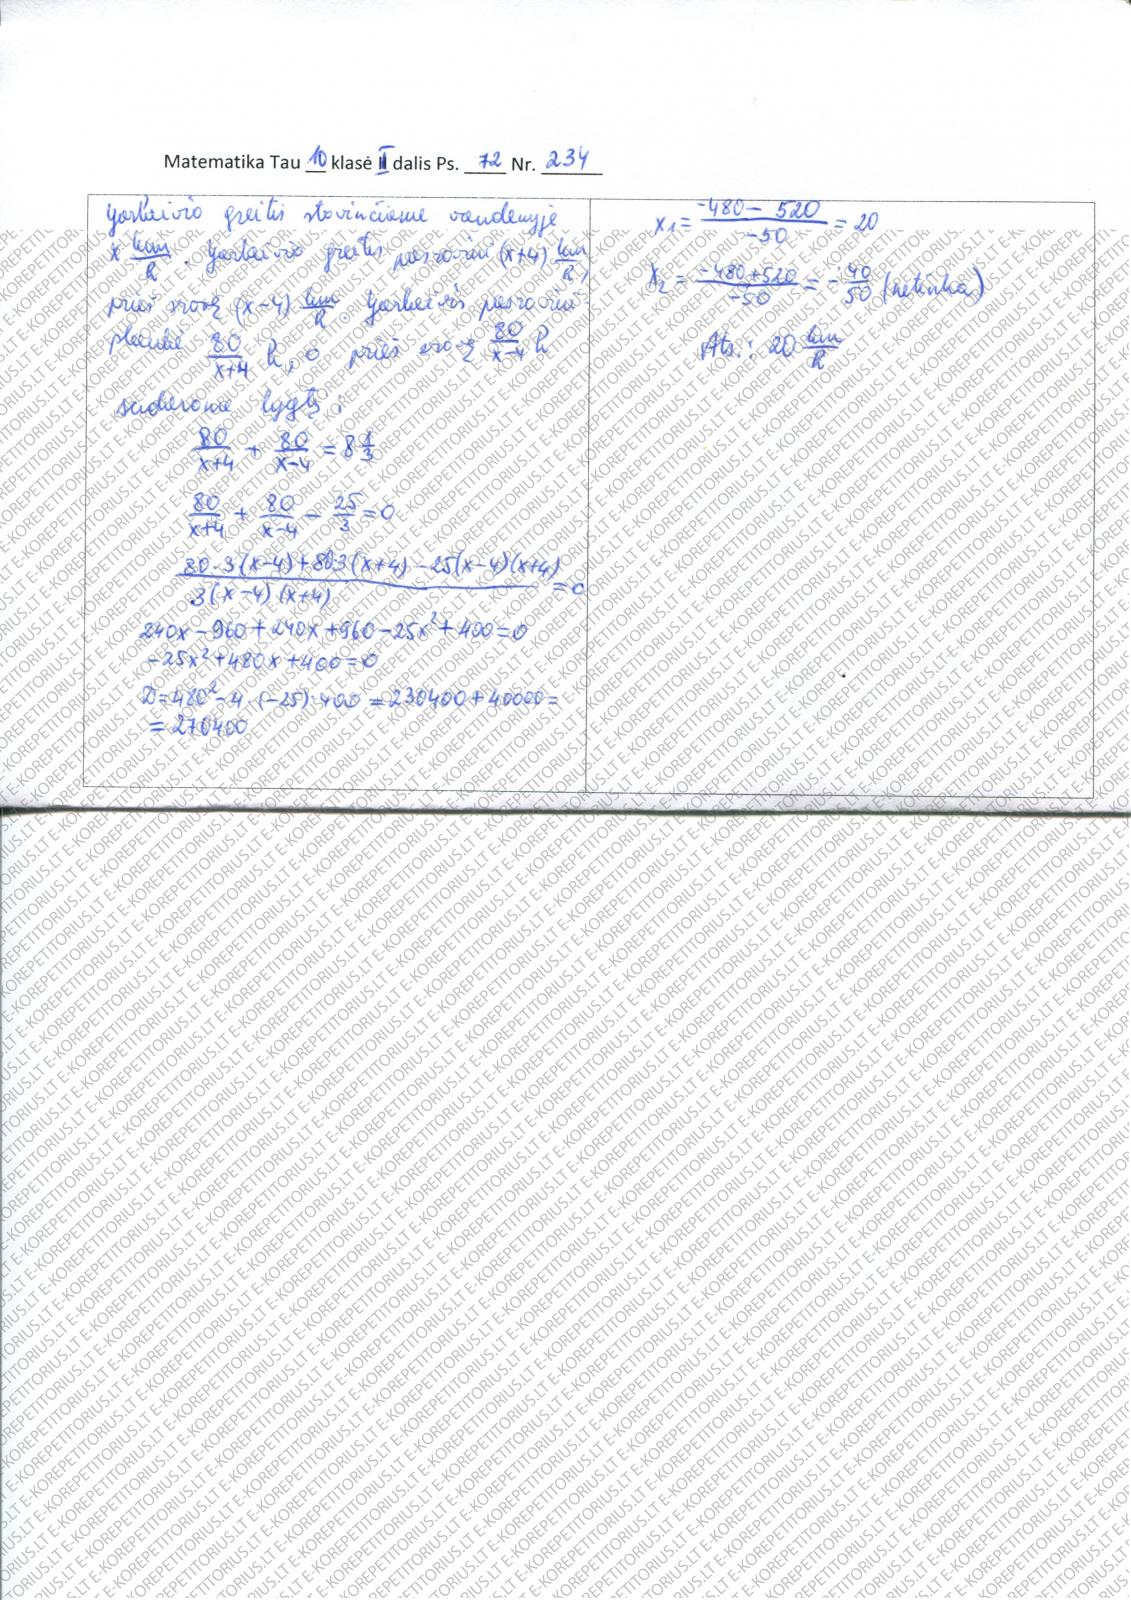 Matematika Tau 10 klasė II dalis Ps. 72 Nr. 234
Garlaivio greitis stovinčiame vandenyje
x km/h. Garlaivio greitis pasroviui (x+4) km/h,
prieš srovę (x-4) km/h. Garlaivis pasroviui
plaukė 80/(x+4) h, o prieš srovę 80/(x-4) h
sudarome lygtį:
80/(x+4) + 80/(x-4) = 8 1/3
80/(x+4) + 80/(x-4) - 25/3 = 0
(80·3(x-4)+80·3(x+4)-25(x-4)(x+4))/(3(x-4)(x+4)) = 0
240x-960+240x+960-25x²+400=0
-25x²+480x+400=0
D=480²-4·(-25)·400=230400+40000=
=270400
x₁= (-480-520)/(-50) = 20
x₂= (-480+520)/(-50) = -40/50 (netinka)
Ats.: 20 km/h
E-KOREPETITORIUS.LT